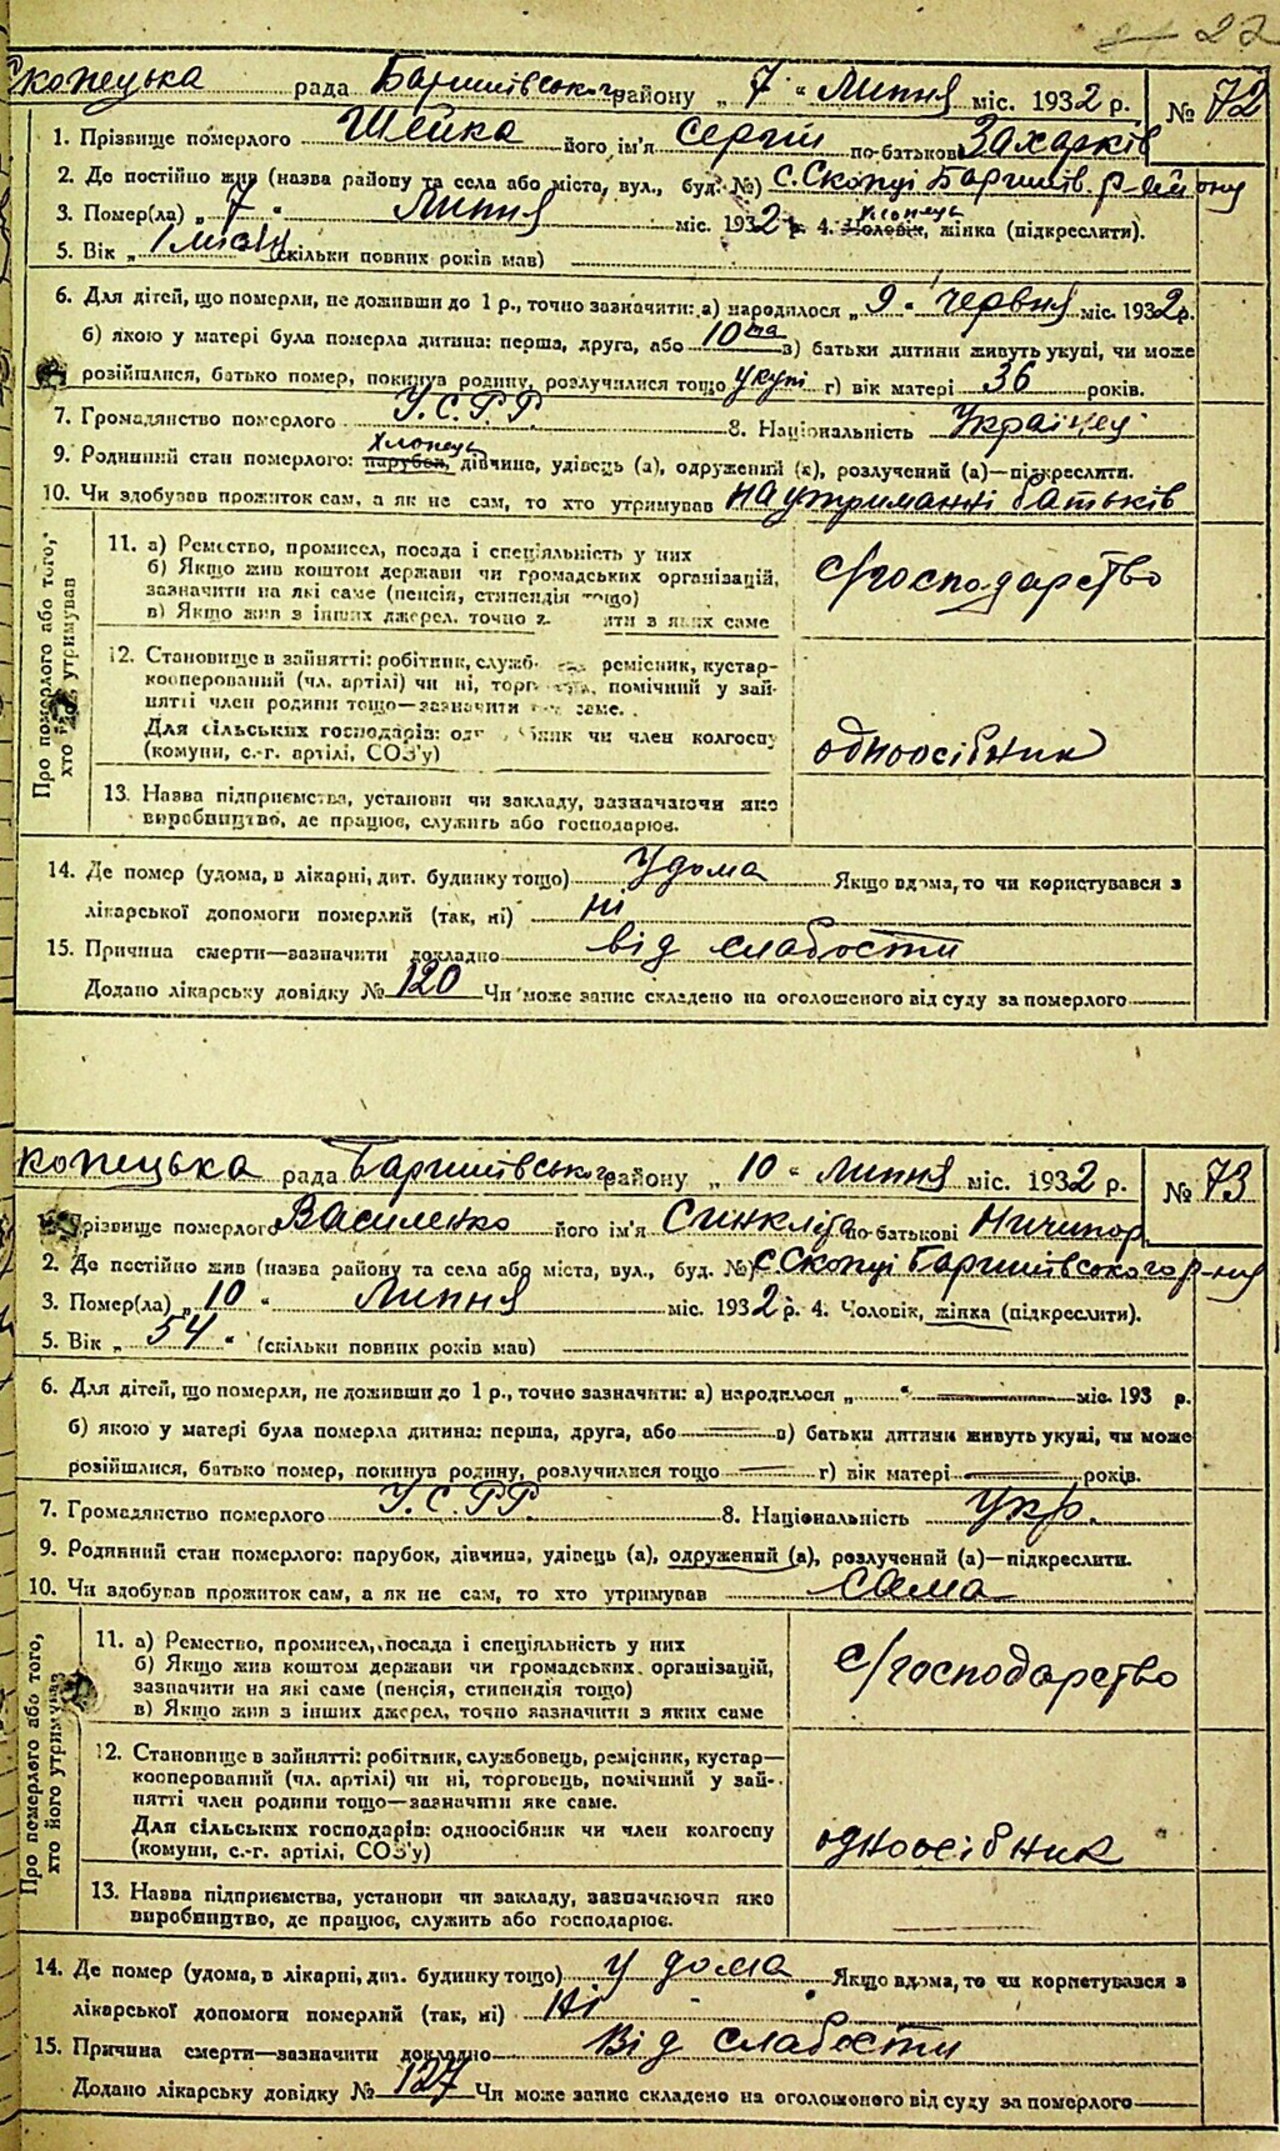 22
Скопецька рада Баришівського району „ 7 " Липня міс. 1932 р. № 72
1. Прізвище померлого Шейка його ім'я Сергій по-батькові Захарків
2. Де постійно жив (назва району та села або міста, вул., буд. №) с. Скопці Баришів. р-йону
3. Помер(ла) „ 7 " Липня міс. 1932 р. 4. Чоловік, жінка (підкреслити).
хлопець
5. Вік „ 1 місяць (скільки повних років мав)
6. Для дітей, що померли, не доживши до 1 р., точно зазначити: а) народилося „ 9 " червня міс. 1932 р.
б) якою у матері була померла дитина: перша, друга, або 10та в) батьки дитини живуть укупі, чи може
розійшлися, батько помер, покинув родину, розлучилися тощо укупі г) вік матері 36 років.
7. Громадянство померлого У.С.Р.Р. 8. Національність Українец
хлопець
9. Родинний стан померлого: парубок, дівчина, удівець (а), одружений (а), розлучений (а)—підкреслити.
10. Чи здобував прожиток сам, а як не сам, то хто утримував на утриманні батьків
Про померлого або того, хто його утримував
11. а) Ремество, промисел, посада і спеціяльність у них
б) Якщо жив коштом держави чи громадських організацій,
зазначити на які саме (пенсія, стипендія тощо)
в) Якщо жив з інших джерел, точно з ити з яких саме
с/господарство
12. Становище в зайнятті: робітник, служб ремісник, кустар-
кооперований (чл. артілі) чи ні, торг помічний у зай-
нятті член родини тощо—зазначити яке саме.
Для сільських господарів: одноосібник чи член колгоспу
(комуни, с.-г. артілі, СОЗ'у)
одноосібник
13. Назва підприємства, установи чи закладу, зазначаючи яке
виробництво, де працює, служить або господарює.
14. Де помер (удома, в лікарні, дит. будинку тощо) Удома Якщо вдома, то чи користувався з
лікарської допомоги померлий (так, ні) ні
15. Причина смерти—зазначити докладно від слабости
Додано лікарську довідку № 120 Чи може запис складено на оголошеного від суду за померлого
копецька рада Баришівського району „ 10 " липня міс. 1932 р. № 73
Прізвище померлого Василенко його ім'я Синкліта по-батькові Ничипор
2. Де постійно жив (назва району та села або міста, вул., буд. №) с Скопці Баришівського р-ну
3. Помер(ла) „ 10 " Липня міс. 1932 р. 4. Чоловік, жінка (підкреслити).
5. Вік „ 54 " (скільки повних років мав)
6. Для дітей, що померли, не доживши до 1 р., точно зазначити: а) народилося „ " міс. 193 р.
б) якою у матері була померла дитина: перша, друга, або в) батьки дитини живуть укупі, чи може
розійшлися, батько помер, покинув родину, розлучилися тощо г) вік матері років.
7. Громадянство померлого У.С.Р.Р. 8. Національність Укр.
9. Родинний стан померлого: парубок, дівчина, удівець (а), одружений (а), розлучений (а)—підкреслити.
10. Чи здобував прожиток сам, а як не сам, то хто утримував сама
Про померлого або того, хто його утримував
11. а) Ремество, промисел, посада і спеціяльність у них
б) Якщо жив коштом держави чи громадських організацій,
зазначити на які саме (пенсія, стипендія тощо)
в) Якщо жив з інших джерел, точно зазначити з яких саме
с/господарство
12. Становище в зайнятті: робітник, службовець, ремісник, кустар—
кооперований (чл. артілі) чи ні, торговець, помічний у зай-
нятті член родини тощо—зазначити яке саме.
Для сільських господарів: одноосібник чи член колгоспу
(комуни, с.-г. артілі, СОЗ'у)
одноосібник
13. Назва підприємства, установи чи закладу, зазначаючи яке
виробництво, де працює, служить або господарює.
14. Де помер (удома, в лікарні, дит. будинку тощо) у дома Якщо вдома, то чи користувався з
лікарської допомоги померлий (так, ні) Ні
15. Причина смерти—зазначити докладно Від слабости
Додано лікарську довідку № 127 Чи може запис складено на оголошеного від суду за померлого